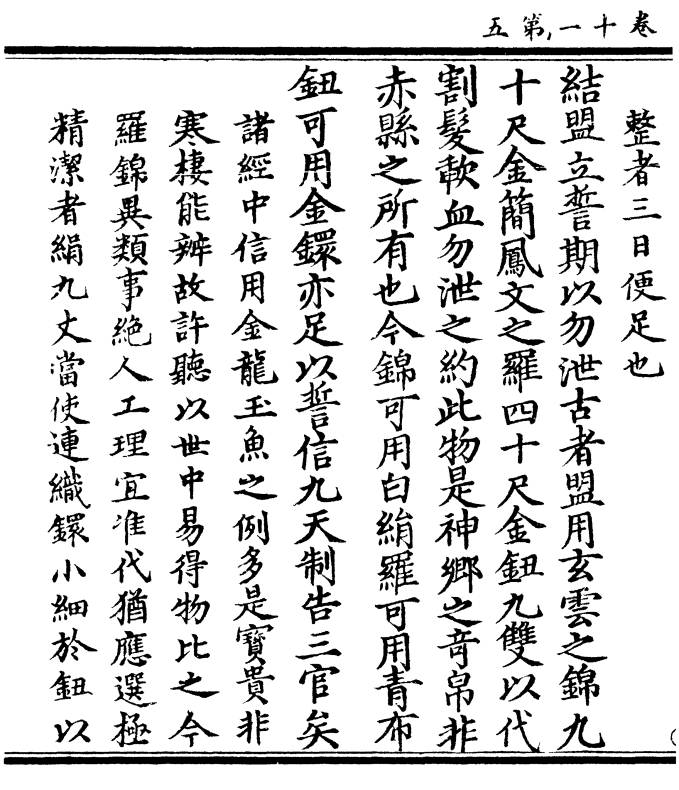 卷十一，第五
整者三日便足也
結盟立誓期以勿泄古者盟用玄雲之錦九
十尺金簡鳳文之羅四十尺金鈕九雙以代
割髮歃血勿泄之約此物是神鄉之奇帛非
赤縣之所有也今錦可用白絹羅可用青布
鈕可用金鐶亦足以誓信九天制告三官矣
諸經中信用金龍玉魚之例多是寶貴非
寒棲能辨故許聽以世中易得物比之今
羅錦異類事絶人工理宜准代猶應選極
精潔者絹九丈當使連織鐶小細於鈕以